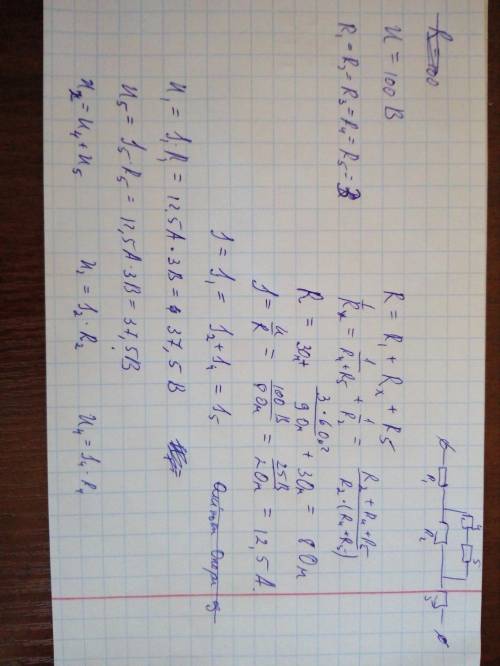 R=100
U = 100 В
R₁ = R₂ = R₃ = R₄ = R₅ =
R₁
R₂
4
5
R = R₁ + Rₓ + R5
1/Rₓ = 1/(R₄+R₅) + 1/R₂ = (R₂ + R₄ + R₅)/(R₂ · (R₄+R₅))
R = 3Ом + (3·6Ом²)/(9Ом) + 3Ом = 8Ом
J = U/R = 100В/8Ом = 25В/2Ом = 12,5 А.
J = J₁ = J₂ + J₄ = J₅
U₁ = J·R₁ = 12,5А · 3В = 37,5 В
U₅ = J₅·R₅ = 12,5А · 3В = 37,5В
U₂ = U₄ + U₅ U₂ = J₂·R₂ U₄ = J₄·R₄